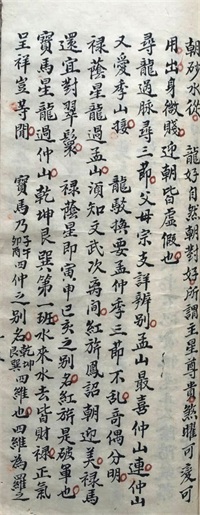 朝砂水從 龍好自然朝對好所謂主星尊貴然曜可愛可
用出身微賤迎朝皆虛假也
尋龍過脉尋三節父母宗支詳辨別孟山最喜仲山連仲山
又愛季山接 龍數擠要孟仲季三節不乱奇偶分明
祿蔭星龍過孟山須知文武次為同紅旂鳳詔朝迎美祿馬
還宜對翠鬟 祿蔭星即寅申巳亥之别名紅旂是破軍也
寶馬星龍過仲山乾坤艮巽第一班水來水去皆財祿正氣
呈祥豈等閒 寶馬乃子午卯酉四仲之别名乾坤艮巽四維也四維為羅之